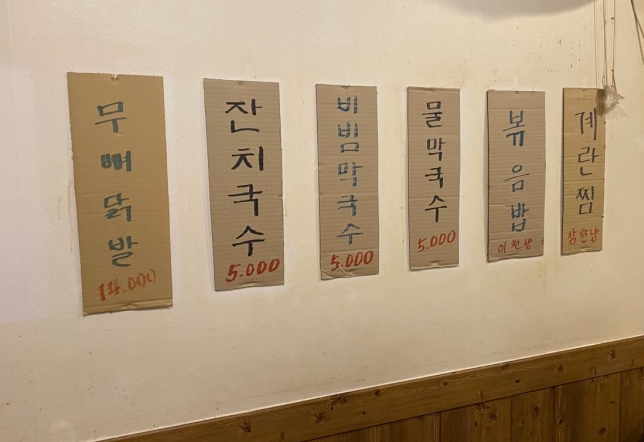 무뼈닭발
잔치국수
5.000
비빔막국수
5.000
물막국수
5.000
볶음밥
이천냥
계란찜
삼천냥